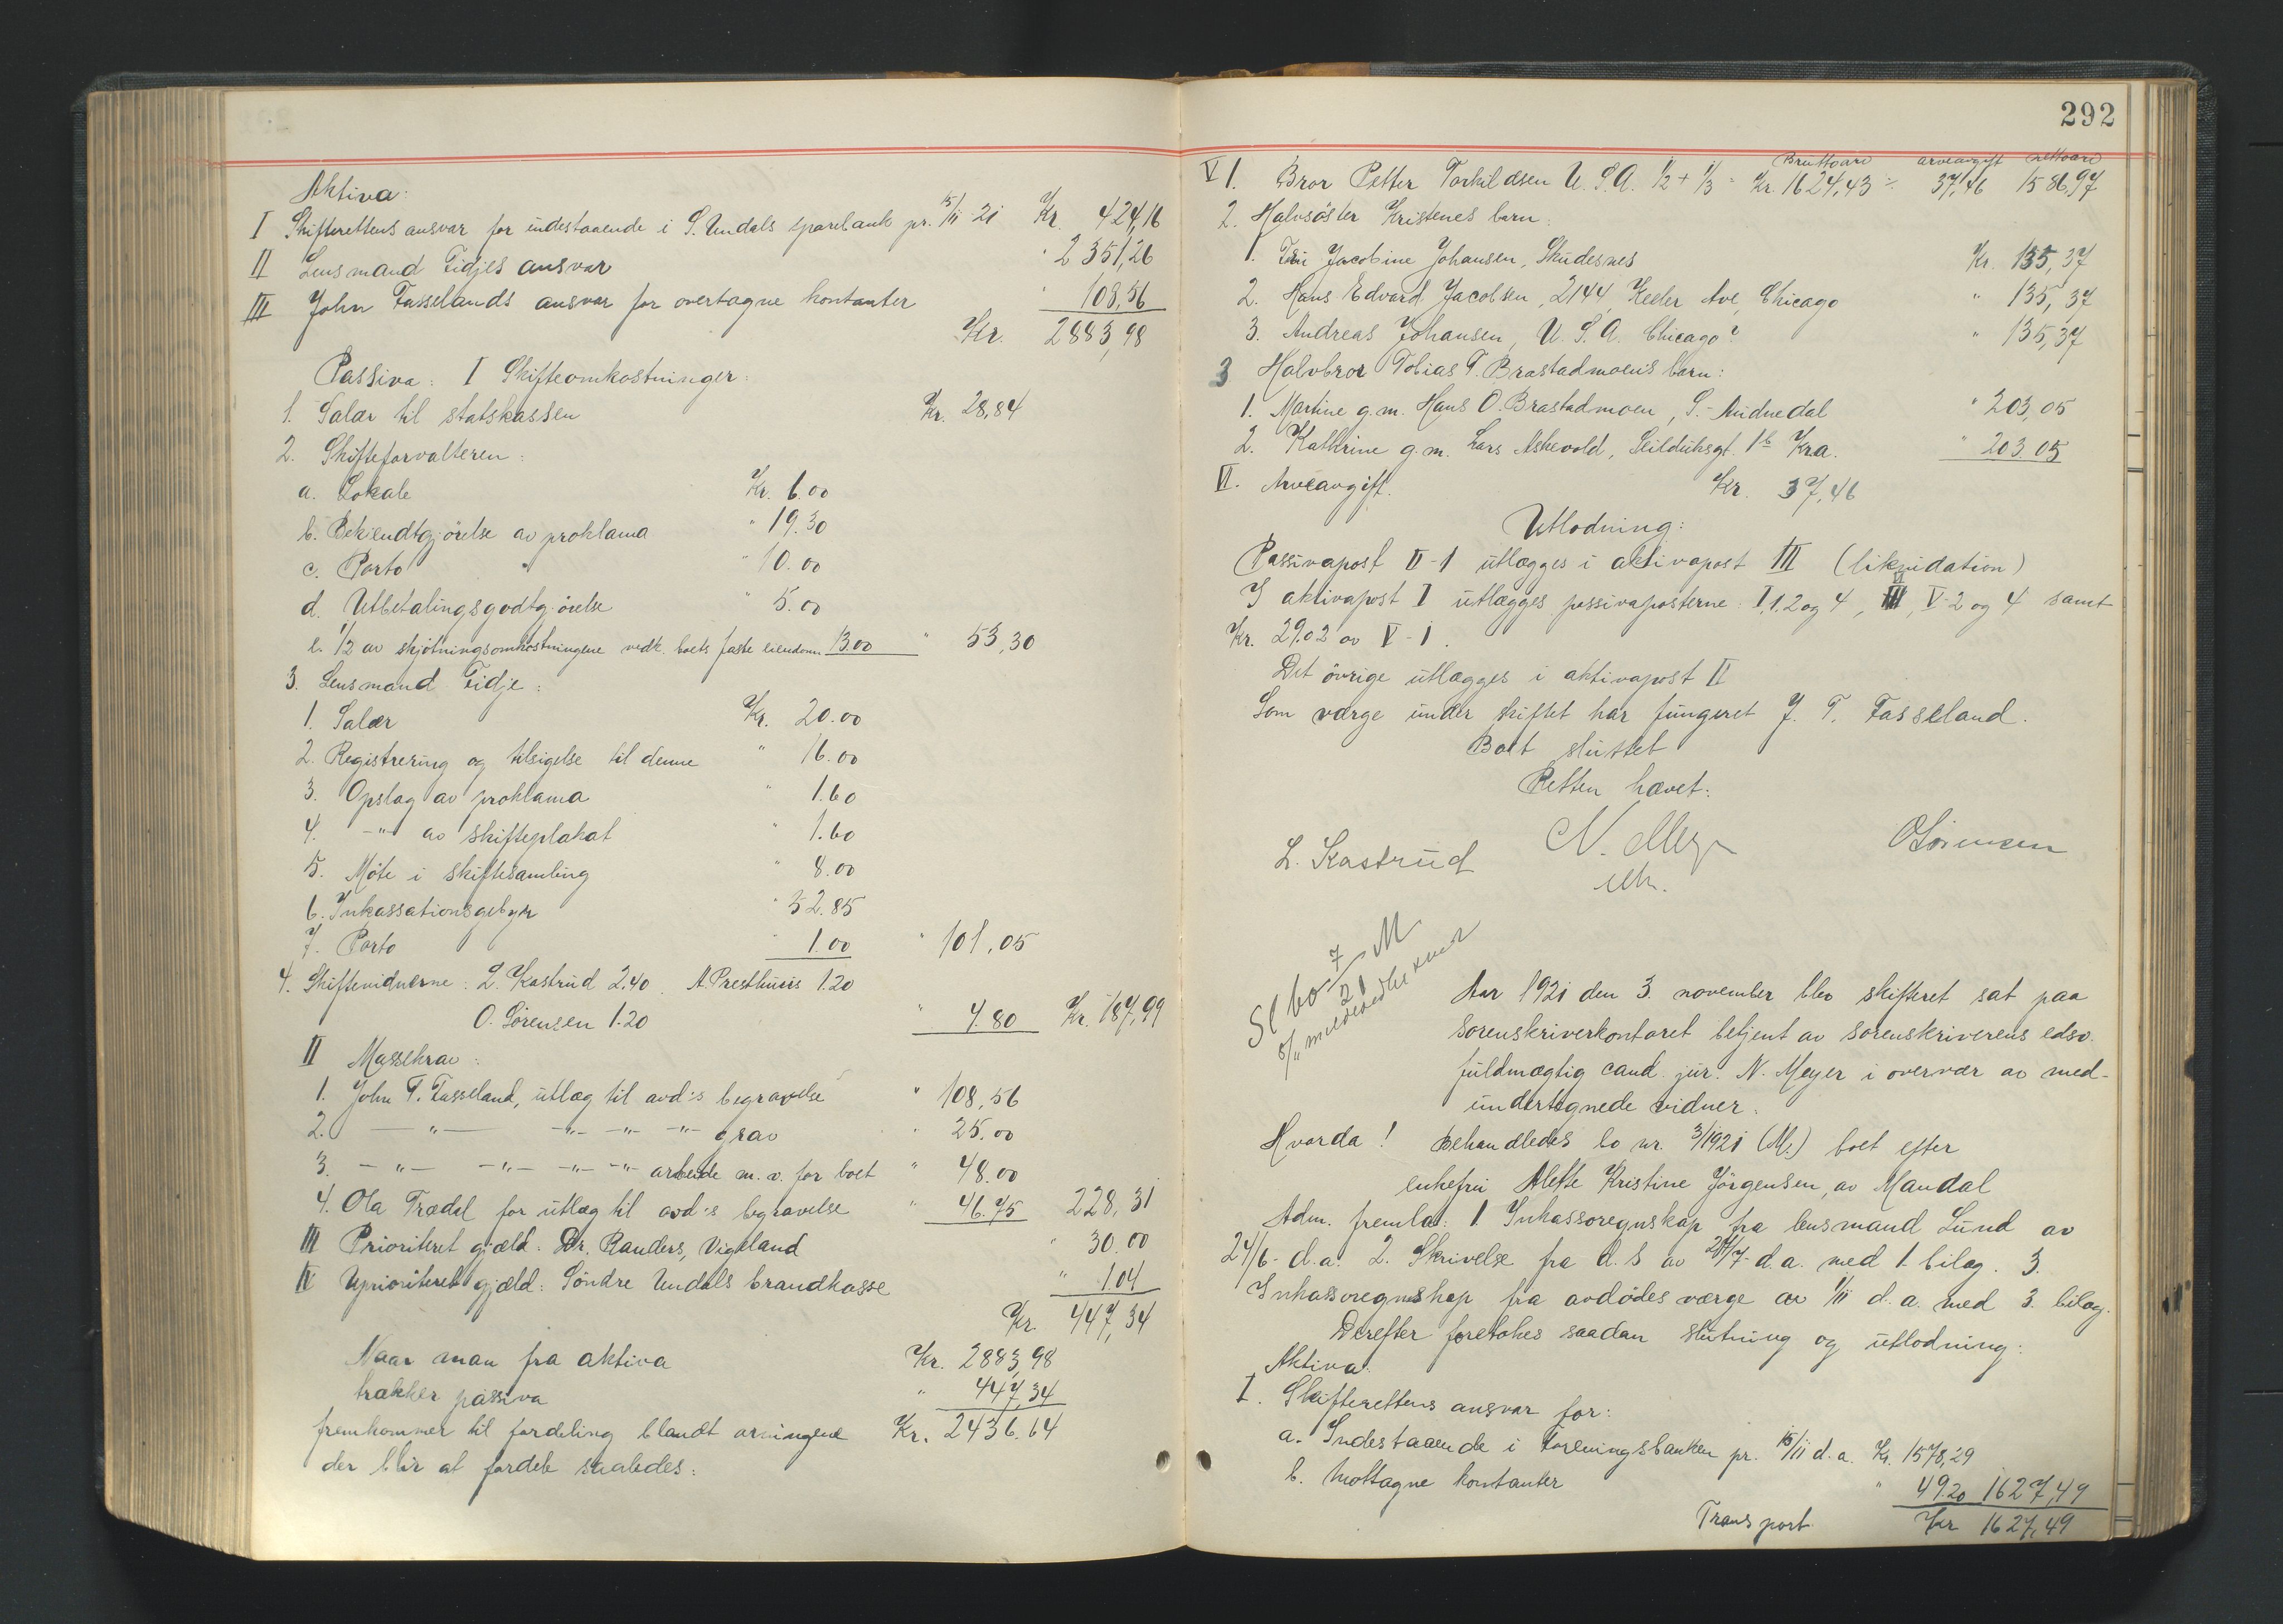 Aktiva:
I Skifterettens ansvar for indestaaende i S. Undals sparebank pr. 15/11 21 Kr. 424,16
II Lensmand Fidjes ansvar " 2351,26
III John Fasselands ansvar for overtagne kontanter " 108,56
Kr. 2883,98
Passiva: I Skifteomkostninger:
1. Salær til statskassen Kr. 28,84
2. Skifteforvalteren:
a. Lokale Kr. 6.00
b. Bekjendtgjörelse av proklama " 19.30
c. Porto " 10.00
d. Utbetalingsgodtgjörelse " 5.00
e. 1/2 av skjötningsomkostningene vedk. boets faste eiendom 13.00 " 53,30
3. Lensmand Fidje:
1. Salær Kr. 20.00
2. Registrering og tilsigelse til denne " 16.00
3. Opslag av proklama " 1.60
4. -"- av skifteplakat " 1.60
5. Möte i skiftesamling " 8.00
6. Inkassationsgebyr " 52.85
7. Porto " 1.00 " 101,05
4. Skiftevidnerne: L. Kastrud 2.40. A. Presthuus 1.20
O. Sörensen 1.20 " 4.80 Kr. 187,99
II Massekrav:
1. John T. Fasseland, utlæg til avd:s begravelse " 108,56
2. -"- -"- -"- -"- grav " 25.00
3. -"- -"- -"- -"- arbeide m. v. for boet " 48.00
4. Ola Trædal for utlæg til avd:s begravelse " 46.75 228,31
III Prioritert gjæld: Dr. Randers, Vigeland " 30.00
IV Uprioritert gjæld: Söndre Undals brandkasse " 1.04
Kr. 447,34
Naar man fra aktiva Kr. 2883,98
trækker passiva " 447,34
fremkommer til fordeling blandt arvingene Kr. 2436.64
der blir at fordele saaledes:
292
Bruttoarv arveavgift nettoarv
V 1. Bror Petter Torkildsen U.S.A. 1/2 + 1/3 = Kr. 1624,43 ÷ 37,46 1586,97
2. Halvsöster Kristenes barn:
1. Fru Jacobine Johansen, Skudesnes Kr. 135,37
2. Hans Edvard Jacobsen, 2144 Keeler Ave, Chicago " 135,37
3. Andreas Johansen, U.S.A. Chicago? " 135,37
3 Halvbror Tobias T. Brastadmoens barn:
1. Martine g.m. Hans O. Brastadmoen, S.-Audnedal " 203,05
2. Kathrine g.m. Lars Askevold, Seilduksgt. 16 Kra. " 203.05
VI. Arveavgift. Kr. 37,46
Utlodning:
Passivapost II-1 utlægges i aktivapost III (likvidation)
I aktivapost I utlægges passivaposterne I,1.2 og 4, III, V-2 og 4 samt
Kr. 29.02 av V-1.
Det övrige utlægges i aktivapost II
Som værge under skiftet har fungeret J. T. Fasseland.
Boet sluttet
Retten hævet:
L. Kastrud N. Meyer O Sörensen
Aar 1921 den 3. november blev skifteret sat paa
sorenskriverkontoret betjent av sorenskriverens edsv.
fuldmægtig cand. jur. N. Meyer i overvær av med-
undertegnede vidner.
Hvorda! Behandledes bo nr. 3/1921 (M.) boet efter
enkefru Alette Kristine Jörgensen, av Mandal
Adm. fremla: 1. Inkassoregnskap fra lensmand Lund av
24/6 d.a. 2. Skrivelse fra d.s av 24/7 d.a. med 1 bilag. 3.
Inkassoregnskap fra avdödes værge av 1/11 d.a. med 3. bilag.
Derefter foretokes saadan slutning og utlodning:
Aktiva:
I. Skifterettens ansvar for:
a. Indestaaende i Foreningsbanken pr. 15/11 d.a. Kr. 1578,29
b. Mottagne kontanter " 49.20 1627,49
Transport Kr 1627,49